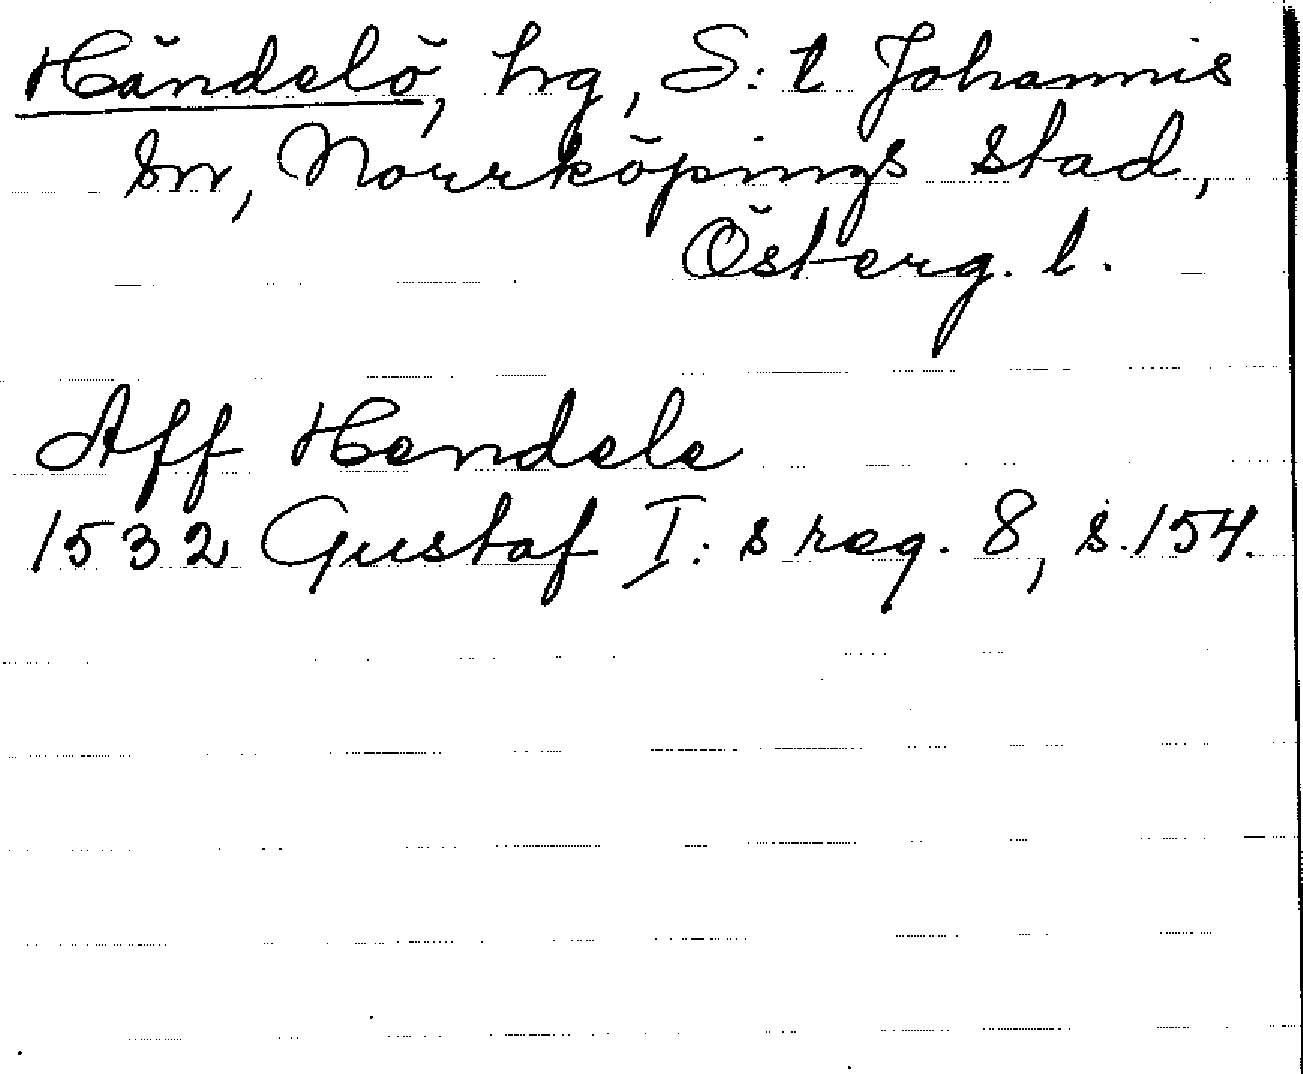 Händelö, hg, S:t Johannis
sn, Norrköpings stad,
Österg. l.
Aff Hendele
1532 Gustaf I:s reg. 8, s. 154.